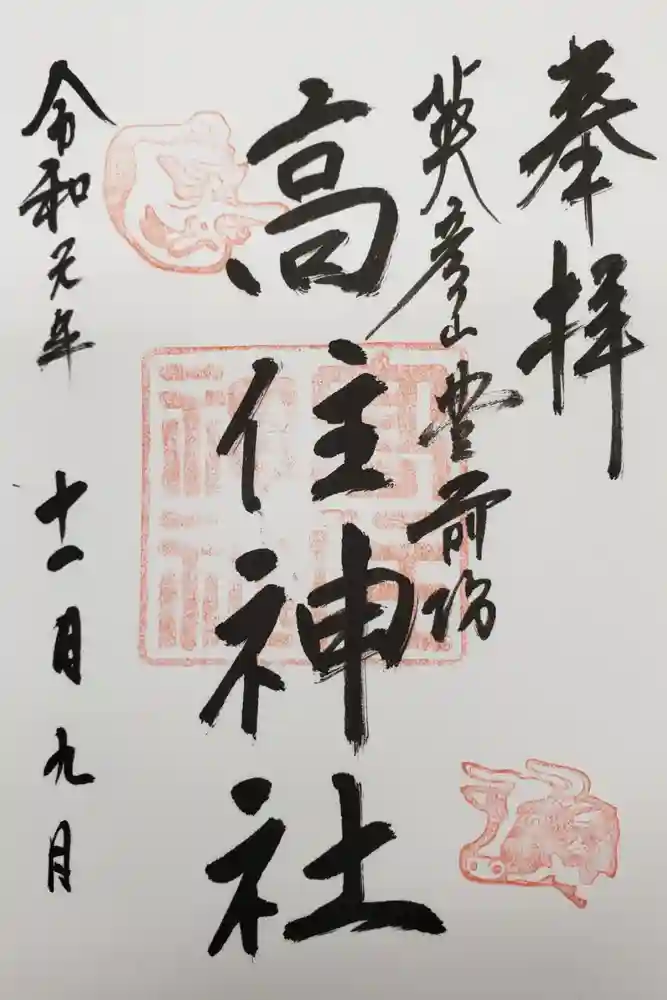 奉拝
英彦山豊前坊
高住神社
令和元年十一月九日